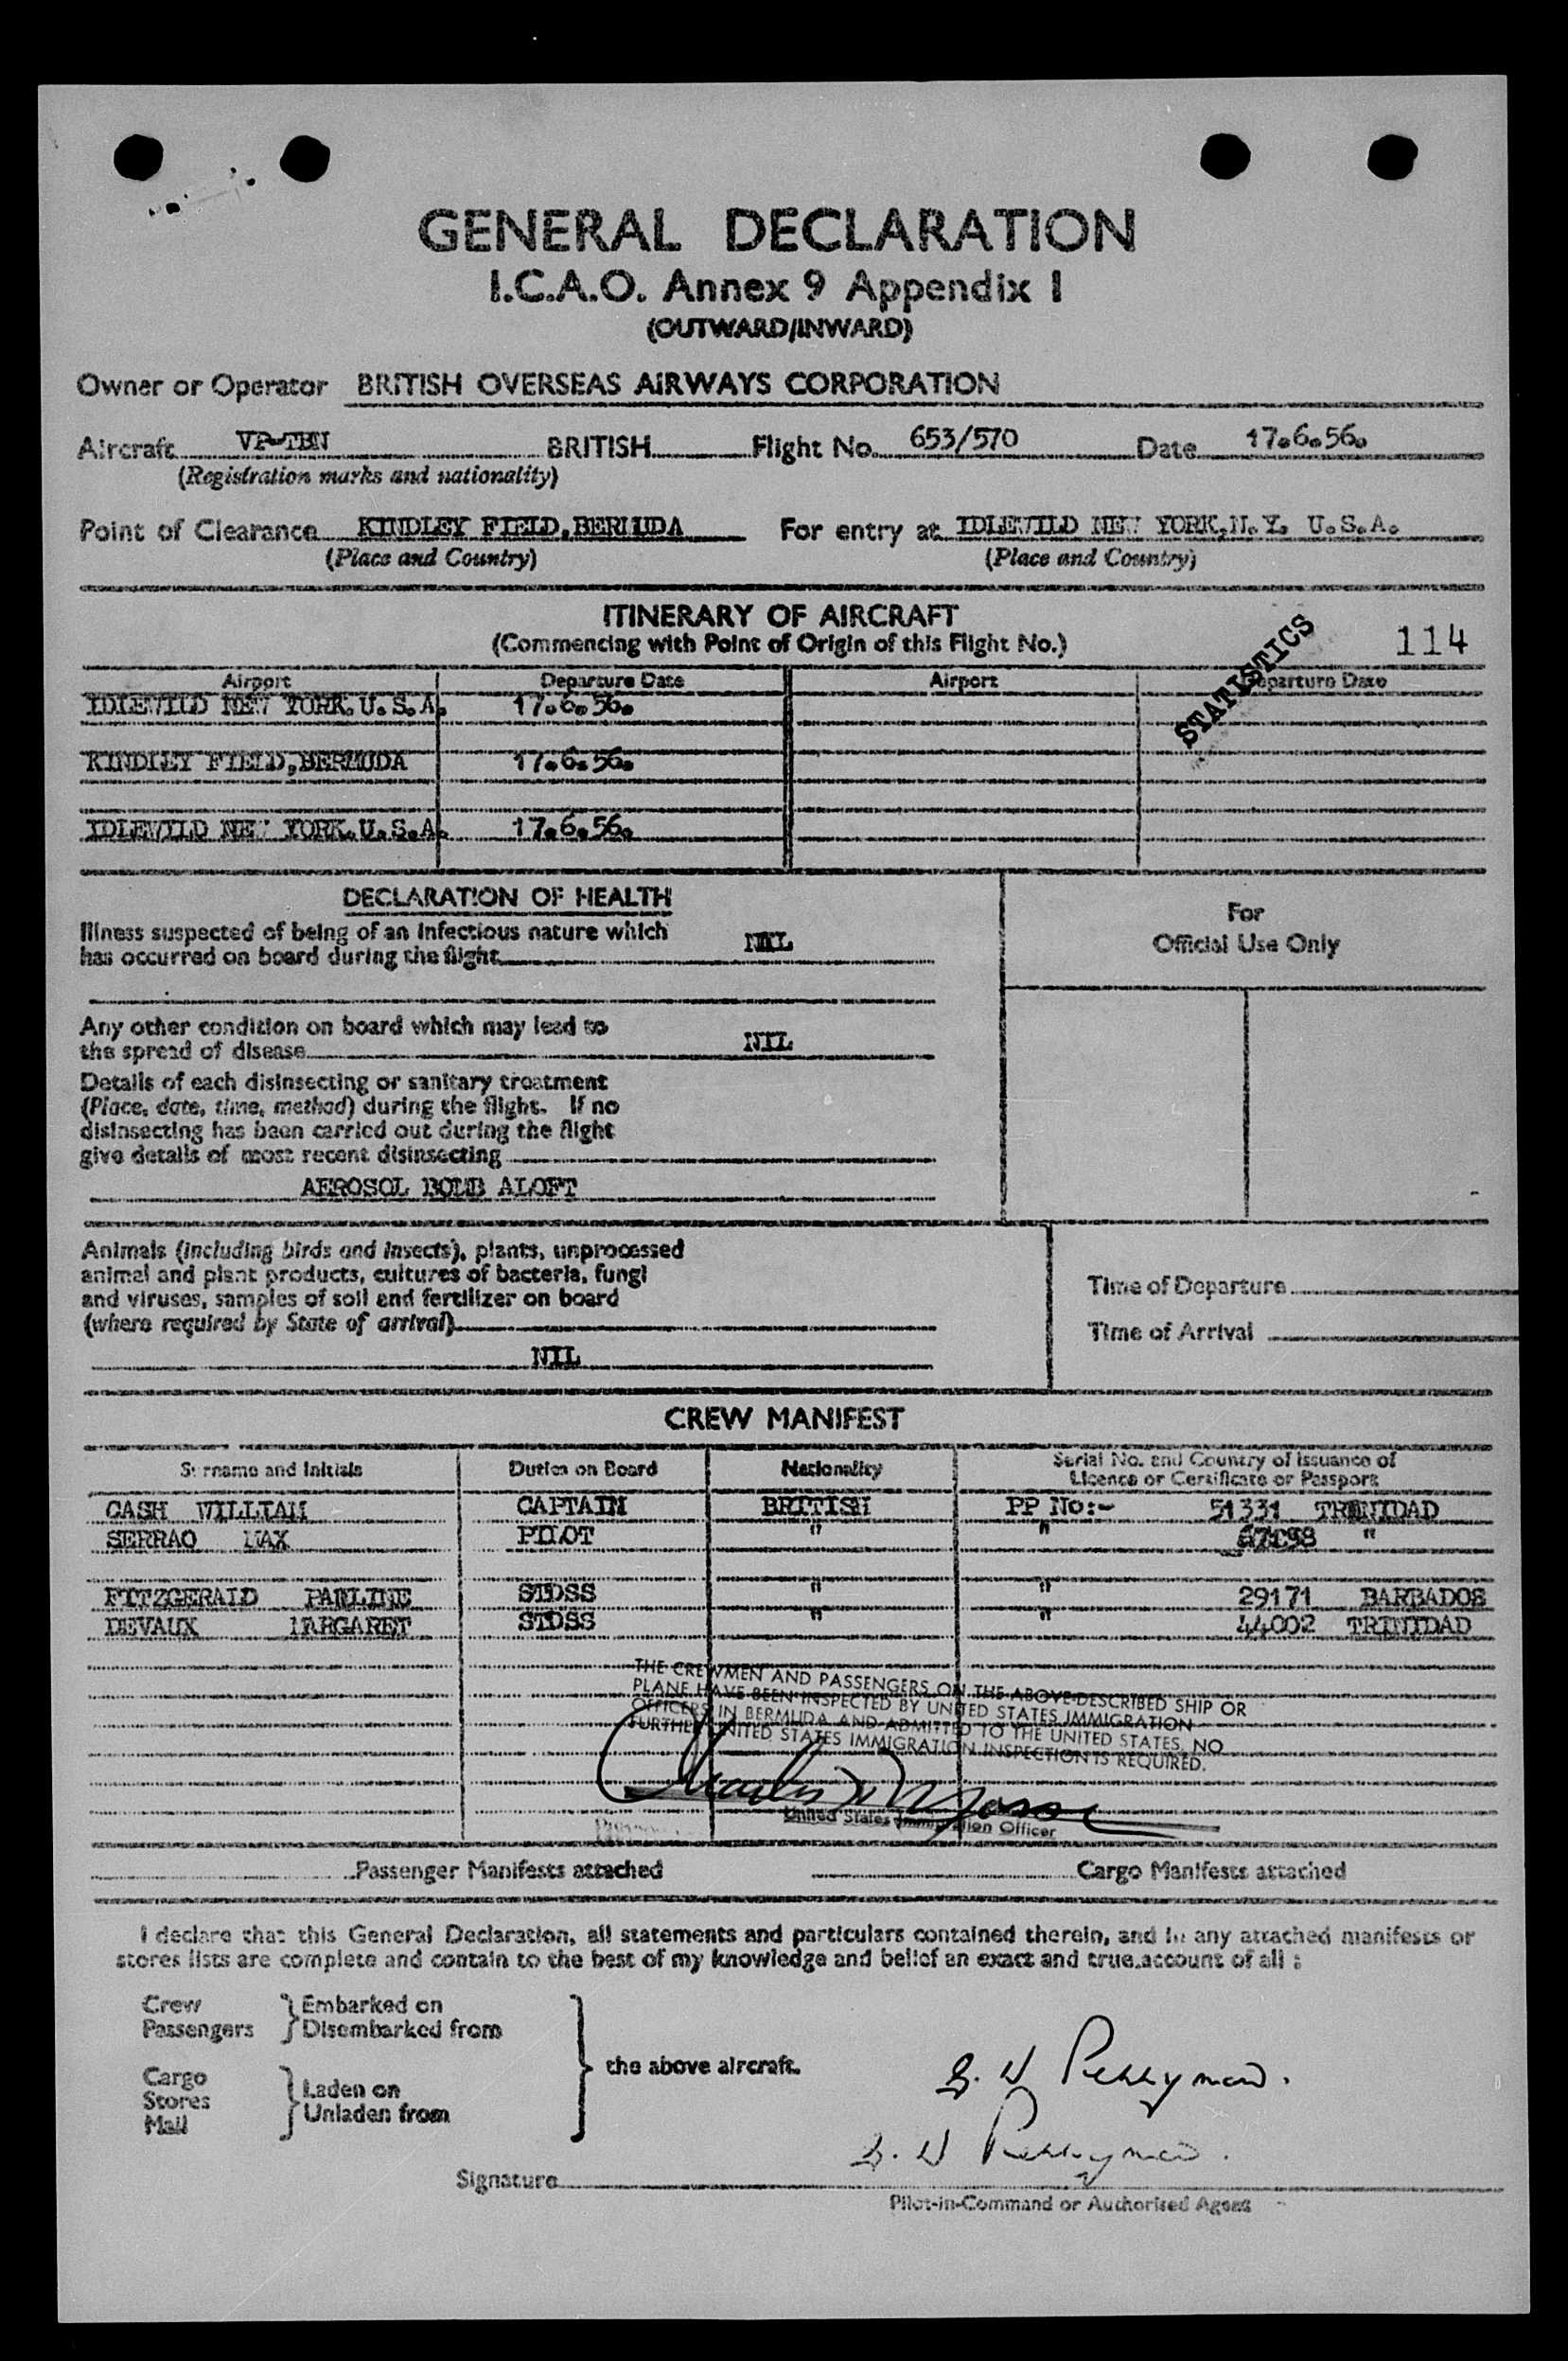 GENERAL DECLARATION
I.C.A.O. Annex 9 Appendix 1
(OUTWARD/INWARD)
Owner or Operator BRITISH OVERSEAS AIRWAYS CORPORATION
Aircraft VP-TBN BRITISH Flight No. 653/570 Date 17.6.56.
(Registration marks and nationality)
Point of Clearance KINDLEY FIELD,BERMUDA For entry at IDLEWILD NEW YORK,N.Y. U.S.A.
(Place and Country) (Place and Country)
ITINERARY OF AIRCRAFT
(Commencing with Point of Origin of this Flight No.)
STATISTICS 114
Airport Departure Date Airport Departure Date
IDLEWILD NEW YORK.U.S.A. 17.6.56.
KINDLEY FIELD,BERMUDA 17.6.56.
IDLEWILD NEW YORK.U.S.A. 17.6.56.
DECLARATION OF HEALTH
Illness suspected of being of an infectious nature which
has occurred on board during the flight NIL
For
Official Use Only
Any other condition on board which may lead to
the spread of disease NIL
Details of each disinsecting or sanitary treatment
(Place, date, time, method) during the flight. If no
disinsecting has been carried out during the flight
give details of most recent disinsecting
AEROSOL BOMB ALOFT
Animals (including birds and insects), plants, unprocessed
animal and plant products, cultures of bacteria, fungi
and viruses, samples of soil and fertilizer on board
(where required by State of arrival)
NIL
Time of Departure
Time of Arrival
CREW MANIFEST
Surname and Initials Duties on Board Nationality Serial No. and Country of Issuance of
Licence or Certificate or Passport
CASH WILLIAM CAPTAIN BRITISH PP No:- 51331 TRINIDAD
SERRAO MAX PILOT " " "
FITZGERALD PAULINE STDSS " " 29171 BARBADOS
DEVAUX MARGARET STDSS " " 44002 TRINIDAD
THE CREWMEN AND PASSENGERS ON THE ABOVE-DESCRIBED SHIP OR
PLANE HAVE BEEN INSPECTED BY UNITED STATES IMMIGRATION
OFFICERS IN BERMUDA AND ADMITTED TO THE UNITED STATES, NO
FURTHER UNITED STATES IMMIGRATION INSPECTION IS REQUIRED.
United States Immigration Officer
Passenger Manifests attached Cargo Manifests attached
I declare that this General Declaration, all statements and particulars contained therein, and in any attached manifests or
stores lists are complete and contain to the best of my knowledge and belief an exact and true account of all :
Crew } Embarked on
Passengers } Disembarked from
the above aircraft.
Cargo
Stores } Laden on
Mail } Unladen from
Perryman.
Perryman.
Signature
Pilot-in-Command or Authorised Agent